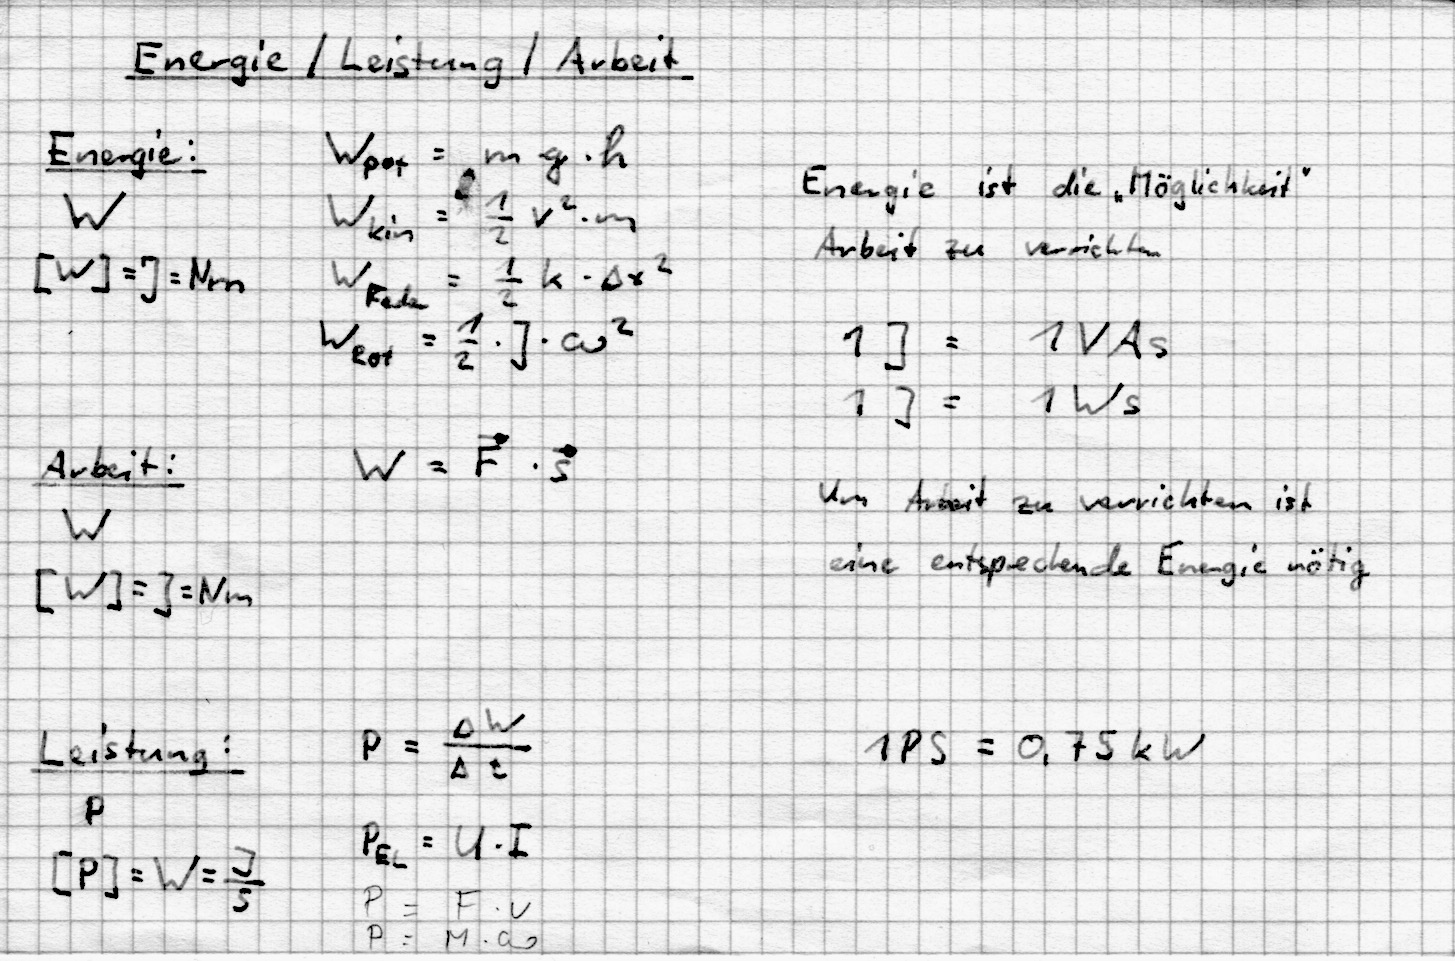 Energie / Leistung / Arbeit
Energie:
W
[W] = J = Nm
W_pot = m g · h
W_kin = 1/2 v² · m
W_Feder = 1/2 k · Δx²
W_Rot = 1/2 · J · ω²
Energie ist die „Möglichkeit"
Arbeit zu verrichten
1 J = 1 VAs
1 J = 1 Ws
Arbeit:
W
[W] = J = Nm
W = F⃗ · s⃗
Um Arbeit zu verrichten ist
eine entsprechende Energie nötig
Leistung:
P
[P] = W = J/s
P = ΔW/Δt
P_EL = U · I
P = F · v
P = M · ω
1 PS = 0,75 kW